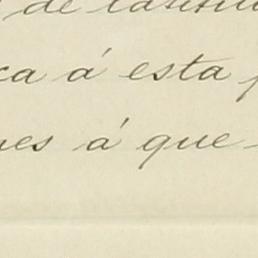 de
ca á esta
nes á que